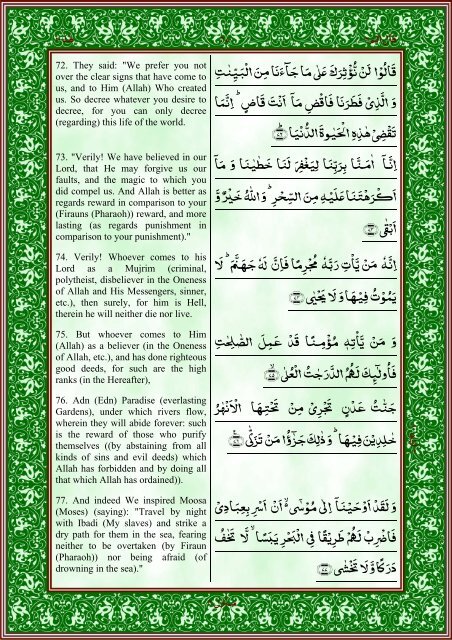 72. They said: "We prefer you not
over the clear signs that have come to
us, and to Him (Allah) Who created
us. So decree whatever you desire to
decree, for you can only decree
(regarding) this life of the world.
قَالُوْا لَنْ نُّؤْثِرَكَ عَلٰى مَا جَآءَنَا مِنَ الْبَيِّنٰتِ
وَ الَّذِىْ فَطَرَنَا فَاقْضِ مَاۤ اَنْتَ قَاضٍ ؕ اِنَّمَا
تَقْضِىْ هٰذِهِ الْحَيٰوةَ الدُّنْيَا ﴿۷۲﴾
73. "Verily! We have believed in our
Lord, that He may forgive us our
faults, and the magic to which you
did compel us. And Allah is better as
regards reward in comparison to your
(Firauns (Pharaoh)) reward, and more
lasting (as regards punishment in
comparison to your punishment)."
اِنَّاۤ اٰمَنَّا بِرَبِّنَا لِيَغْفِرَ لَنَا خَطٰيٰنَا وَ مَاۤ
اَكْرَهْتَنَا عَلَيْهِ مِنَ السِّحْرِ ؕ وَ اللّٰهُ خَيْرٌ وَّ
اَبْقٰى ﴿۷۳﴾
74. Verily! Whoever comes to his
Lord as a Mujrim (criminal,
polytheist, disbeliever in the Oneness
of Allah and His Messengers, sinner,
etc.), then surely, for him is Hell,
therein he will neither die nor live.
اِنَّهٗ مَنْ يَّاْتِ رَبَّهٗ مُجْرِمًا فَاِنَّ لَهٗ جَهَنَّمَ ؕ لَا
يَمُوْتُ فِيْهَا وَ لَا يَحْيٰى ﴿۷۴﴾
75. But whoever comes to Him
(Allah) as a believer (in the Oneness
of Allah, etc.), and has done righteous
good deeds, for such are the high
ranks (in the Hereafter),
وَ مَنْ يَّاْتِهٖ مُؤْمِنًا قَدْ عَمِلَ الصّٰلِحٰتِ
فَاُولٰٓئِكَ لَهُمُ الدَّرَجٰتُ الْعُلٰى ﴿۷۵﴾
76. Adn (Edn) Paradise (everlasting
Gardens), under which rivers flow,
wherein they will abide forever: such
is the reward of those who purify
themselves ((by abstaining from all
kinds of sins and evil deeds) which
Allah has forbidden and by doing all
that which Allah has ordained)).
جَنّٰتُ عَدْنٍ تَجْرِىْ مِنْ تَحْتِهَا الْاَنْهٰرُ
خٰلِدِيْنَ فِيْهَا ؕ وَ ذٰلِكَ جَزٰٓؤُا مَنْ تَزَكّٰى ﴿۷۶﴾
77. And indeed We inspired Moosa
(Moses) (saying): "Travel by night
with Ibadi (My slaves) and strike a
dry path for them in the sea, fearing
neither to be overtaken (by Firaun
(Pharaoh)) nor being afraid (of
drowning in the sea)."
وَ لَقَدْ اَوْحَيْنَاۤ اِلٰى مُوْسٰٓى ۙ اَنْ اَسْرِ بِعِبَادِىْ
فَاضْرِبْ لَهُمْ طَرِيْقًا فِى الْبَحْرِ يَبَسًا ۙ لَّا تَخٰفُ
دَرَكًا وَّ لَا تَخْشٰى ﴿۷۷﴾